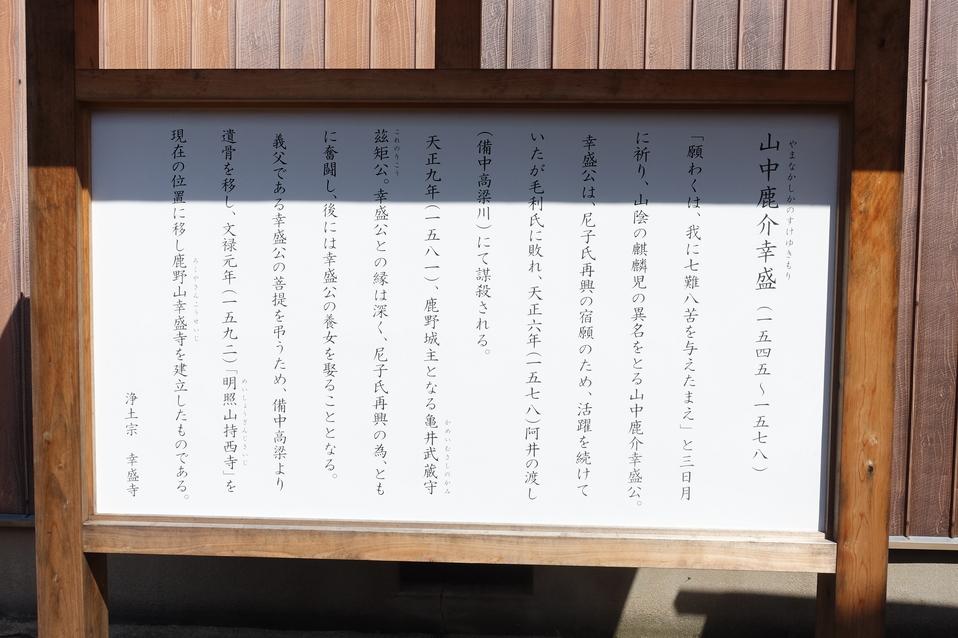 山中鹿介幸盛（一五四五〜一五七八）
やまなかしかのすけゆきもり
「願わくは、我に七難八苦を与えたまえ」と三日月
に祈り、山陰の麒麟児の異名をとる山中鹿介幸盛公。
幸盛公は、尼子氏再興の宿願のため、活躍を続けて
いたが毛利氏に敗れ、天正六年（一五七八）阿井の渡し
（備中高梁川）にて謀殺される。
天正九年（一五八一）、鹿野城主となる亀井武蔵守
かめいむさしのかみ
茲矩公。幸盛公との縁は深く、尼子氏再興の為、とも
これのりこう
に奮闘し、後には幸盛公の養女を娶ることとなる。
義父である幸盛公の菩提を弔うため、備中高梁より
遺骨を移し、文禄元年（一五九二）「明照山持西寺」を
めいしょうざんじさいじ
現在の位置に移し鹿野山幸盛寺を建立したものである。
浄土宗　幸盛寺